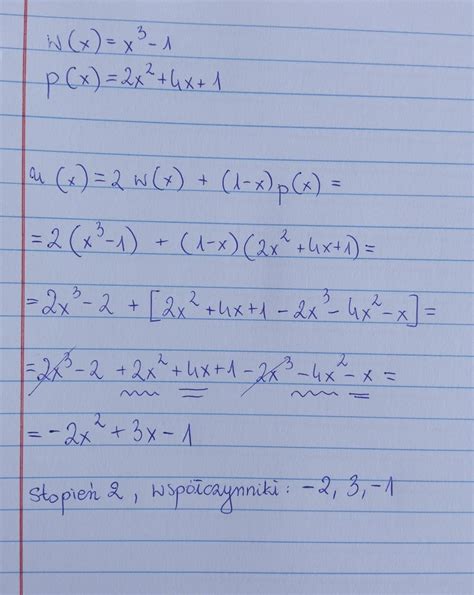 w(x)=x³-1
p(x)=2x²+4x+1
u(x)=2w(x)+(1-x)p(x)=
=2(x³-1)+(1-x)(2x²+4x+1)=
=2x³-2+[2x²+4x+1-2x³-4x²-x]=
=2x³-2+2x²+4x+1-2x³-4x²-x=
=-2x²+3x-1
Stopień 2, współczynniki: -2, 3, -1